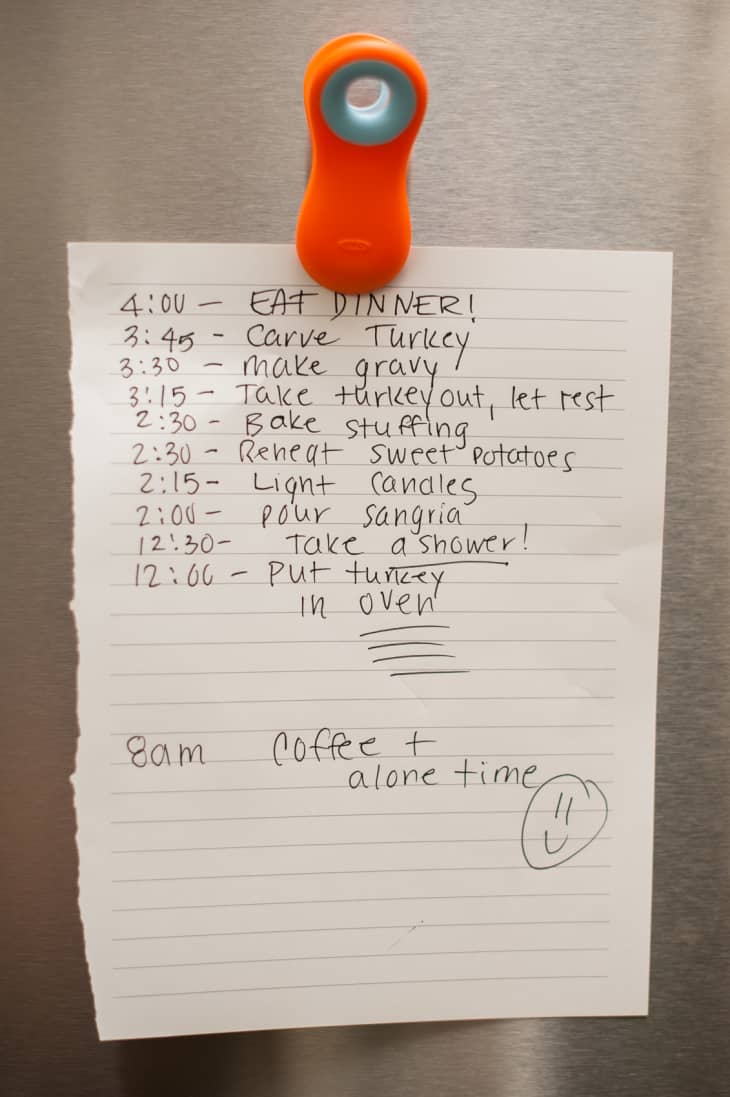 4:00 - EAT DINNER!
3:45 - Carve Turkey
3:30 - make gravy
3:15 - Take turkey out, let rest
2:30 - Bake stuffing
2:30 - Reheat sweet potatoes
2:15 - Light candles
2:00 - pour sangria
12:30 - Take a shower!
12:00 - Put turkey
in oven
8am coffee +
alone time